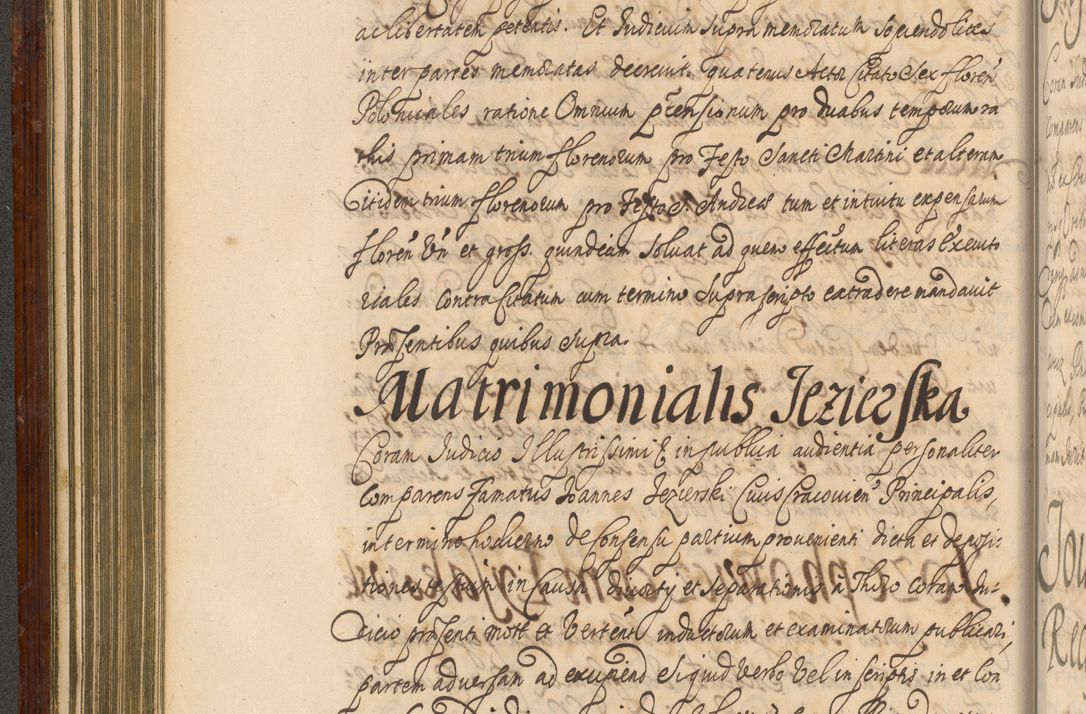 ac libertatem petentis. Et Judicium supra memoratum sopiendo lites
inter partes memoratas decrevit. quatenus Actor Citato sex floren
Polonicales, ratione Omnium prtensionum pro duabus temporum ra
this primam trium florenorum pro Festo Sancti Martini et alteram
itidem trium florenorum pro Festo S. Andreæ tum et intuitu expensarum
floren Un et gross. quindecim solvat ad quem effectum literas Executo
riales contra Citatum cum termino supra scripto extradere mandavit
Præsentibus quibus supra.
Matrimonialis Jezierska
Coram Judicio Illustrissimi & in publica audientia personaliter
Comparens Famatus Joannes Jezierski Civis Cracovien Principalis,
in termino hodierno de Consensu partium provenienti dicta et deposi-
tiones testium in Causa divortij et separationis a Thoro coram Ju-
dicio præsenti mott et Vertent inductorum et examinatorum publicari,
partem adversam ad excipiend siquid verbo vel in scriptis in et con